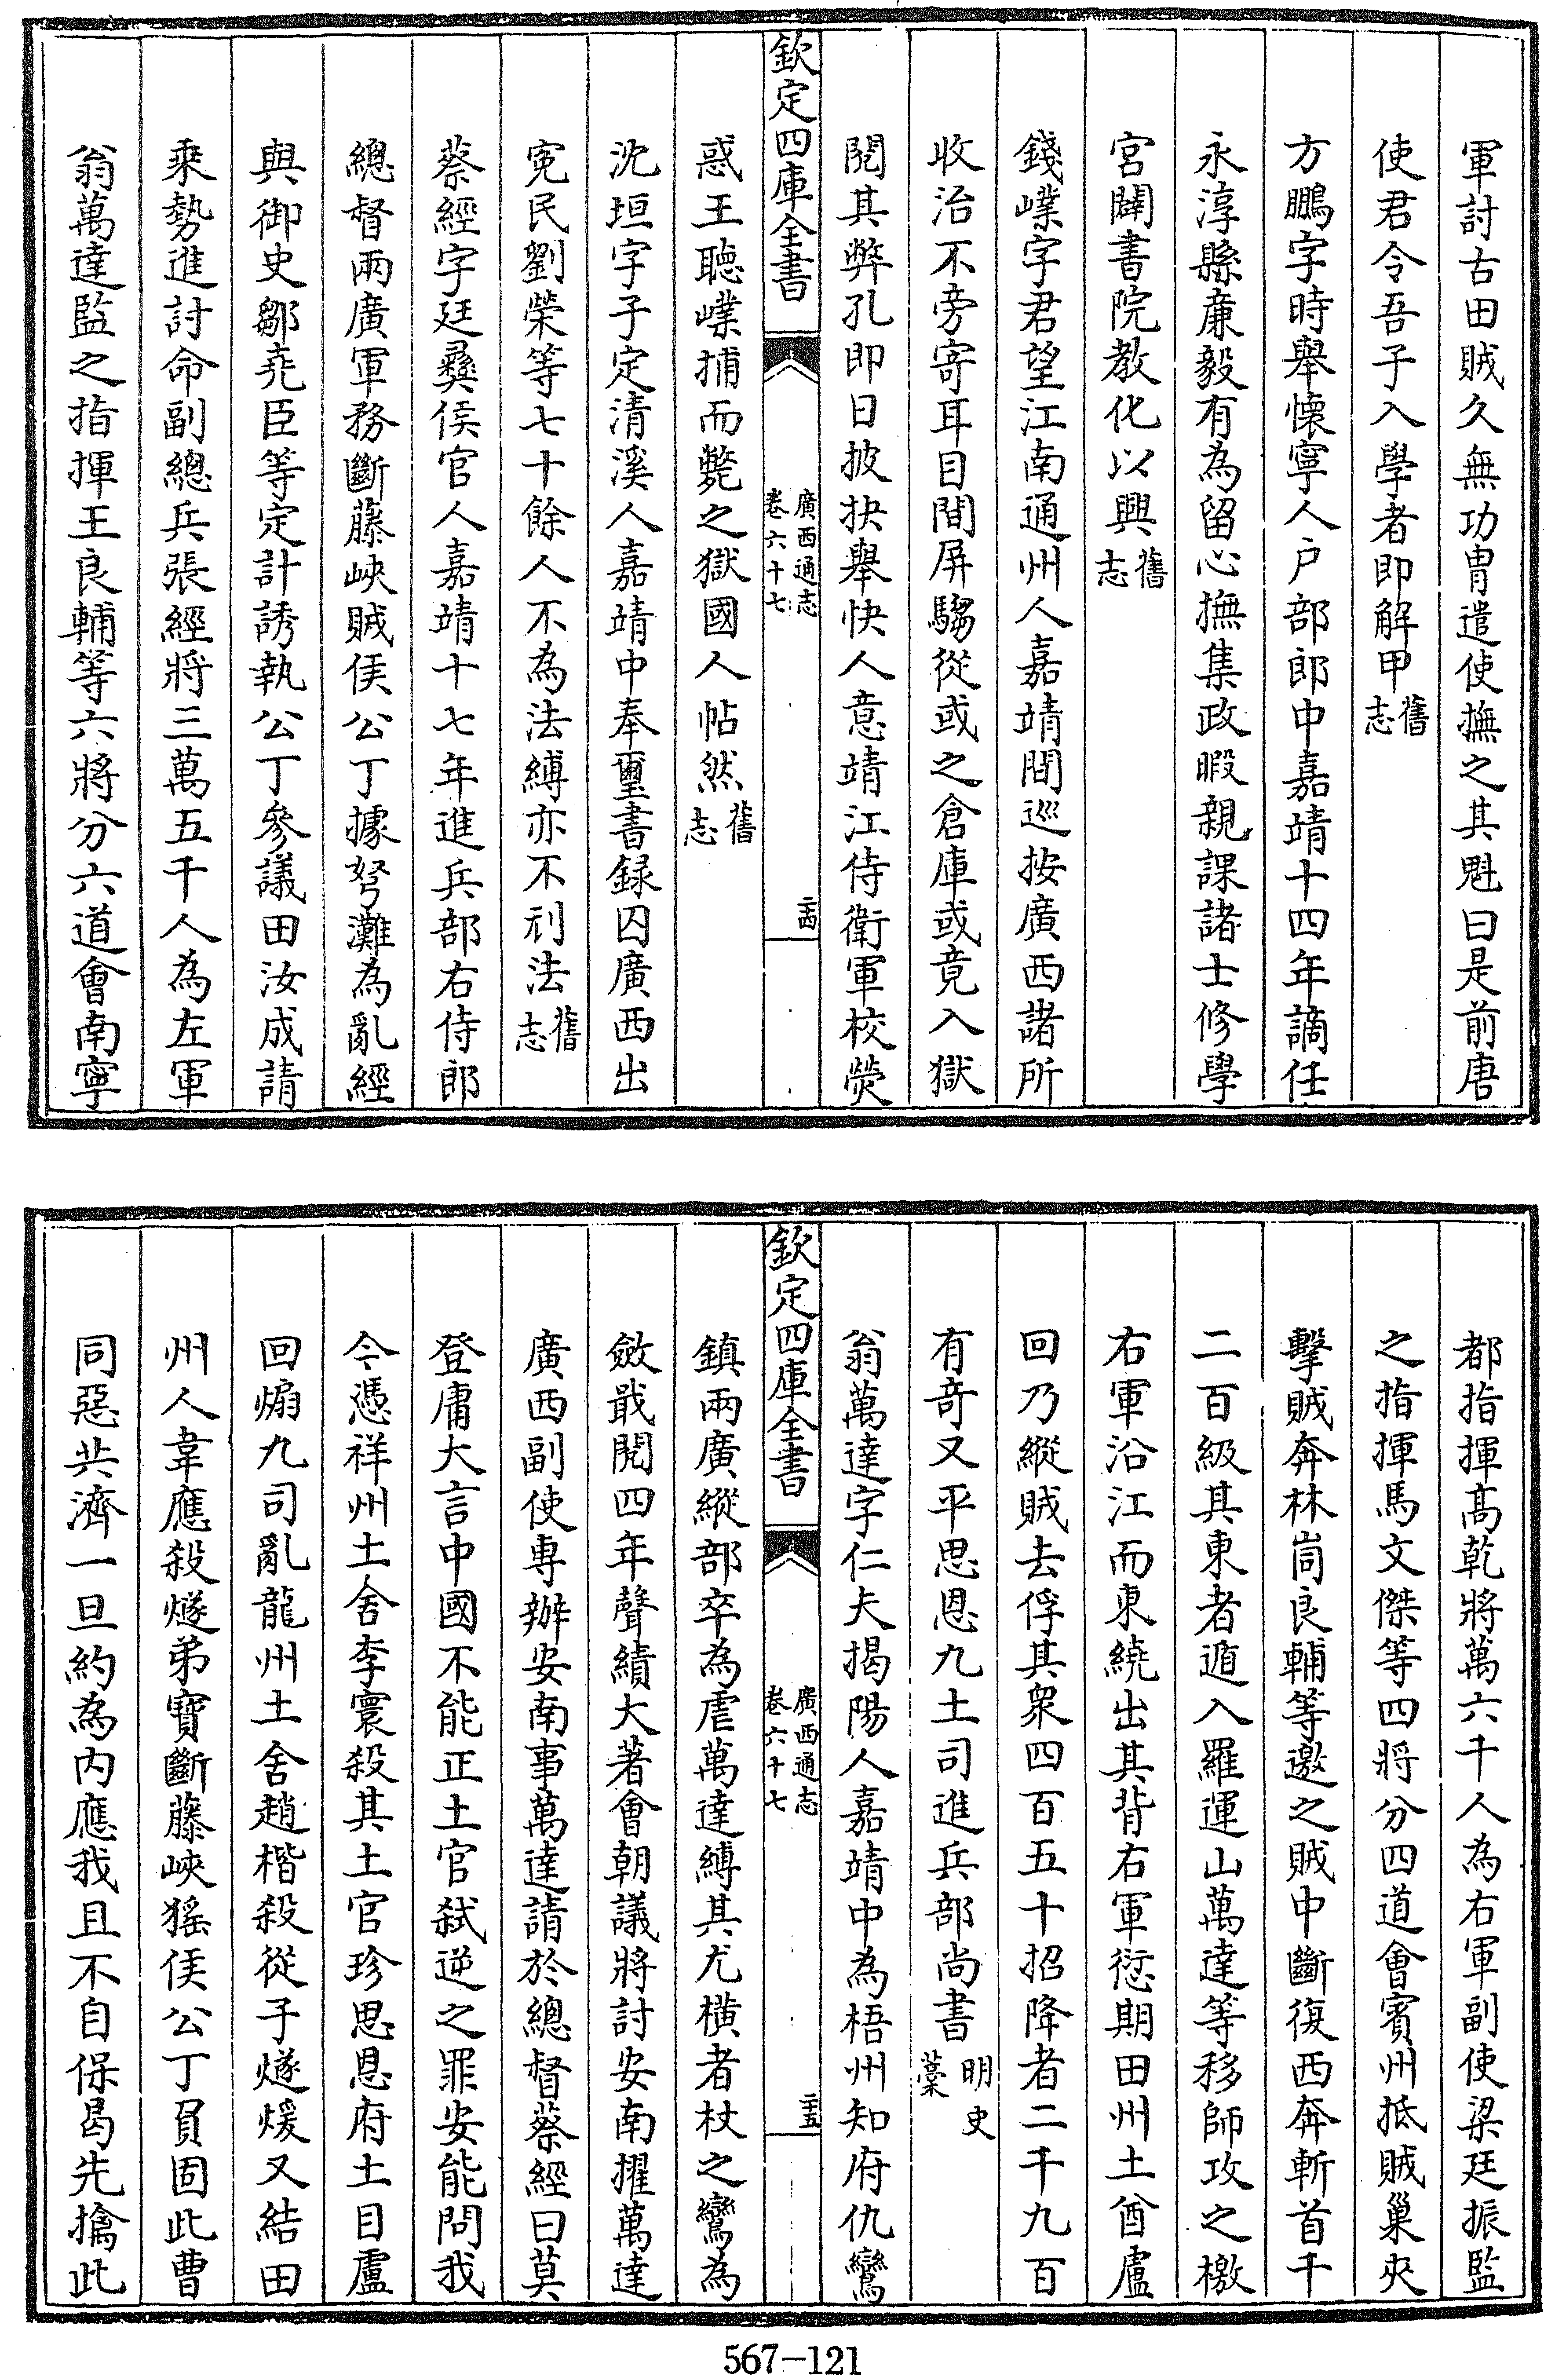 軍討古田賊久無功冑遣使撫之其魁曰是前唐
使君令吾子入學者即解甲舊志
方鵬字時舉懷寧人户部郎中嘉靖十四年謫任
永淳縣亷毅有為留心撫集政暇親課諸士修學
宮闢書院教化以興舊志
錢嶫字君望江南通州人嘉靖間巡按廣西諸所
收治不旁寄耳目間屏騶從或之倉庫或竟入獄
閱其弊孔即日披抉舉快人意靖江侍衛軍校熒
欽定四庫全書
廣西通志
卷六十七
二十四
惑王聴嶫捕而斃之獄國人帖然舊志
沈垣字子定清溪人嘉靖中奉璽書録囚廣西出
寃民劉榮等七十餘人不為法縛亦不利法舊志
蔡經字廷彛侯官人嘉靖十七年進兵部右侍郎
總督兩廣軍務斷藤峽賊侯公丁據弩灘為亂經
與御史鄒堯臣等定計誘執公丁參議田汝成請
乘勢進討命副總兵張經將三萬五千人為左軍
翁萬達監之指揮王良輔等六將分六道會南寧
都指揮高乾將萬六千人為右軍副使梁廷振監
之指揮馬文傑等四將分四道會賓州抵賊巢夾
擊賊奔林峝良輔等邀之賊中斷復西奔斬首千
二百級其東者遁入羅運山萬達等移師攻之檄
右軍沿江而東繞出其背右軍愆期田州土酋盧
回乃縱賊去俘其衆四百五十招降者二千九百
有奇又平思恩九土司進兵部尚書明史藁
翁萬達字仁夫揭陽人嘉靖中為梧州知府仇鸞
欽定四庫全書
廣西通志
卷六十七
二十五
鎮兩廣縱部卒為虐萬達縛其尤横者杖之鸞為
斂戢閱四年聲績大著會朝議將討安南擢萬達
廣西副使專辦安南事萬達請於總督蔡經曰莫
登庸大言中國不能正土官弑逆之罪安能問我
今憑祥州土舍李寰殺其土官珍思恩府土目盧
回煽九司亂龍州土舍趙楷殺從子燧煖又結田
州人韋應殺燧弟寶斷藤峽猺侯公丁負固此曹
同惡共濟一旦約為内應我且不自保曷先擒此
567-121